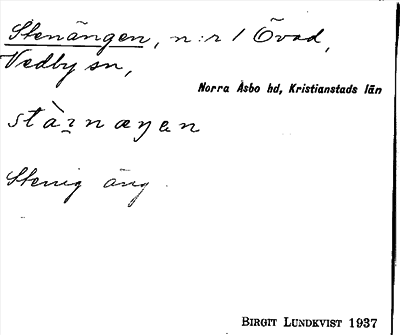 Stenängen, n:r 1 Övad,
Vedby sn,
Norra Åsbo hd, Kristianstads län
Stenig äng.
BIRGIT LUNDKVIST 1937